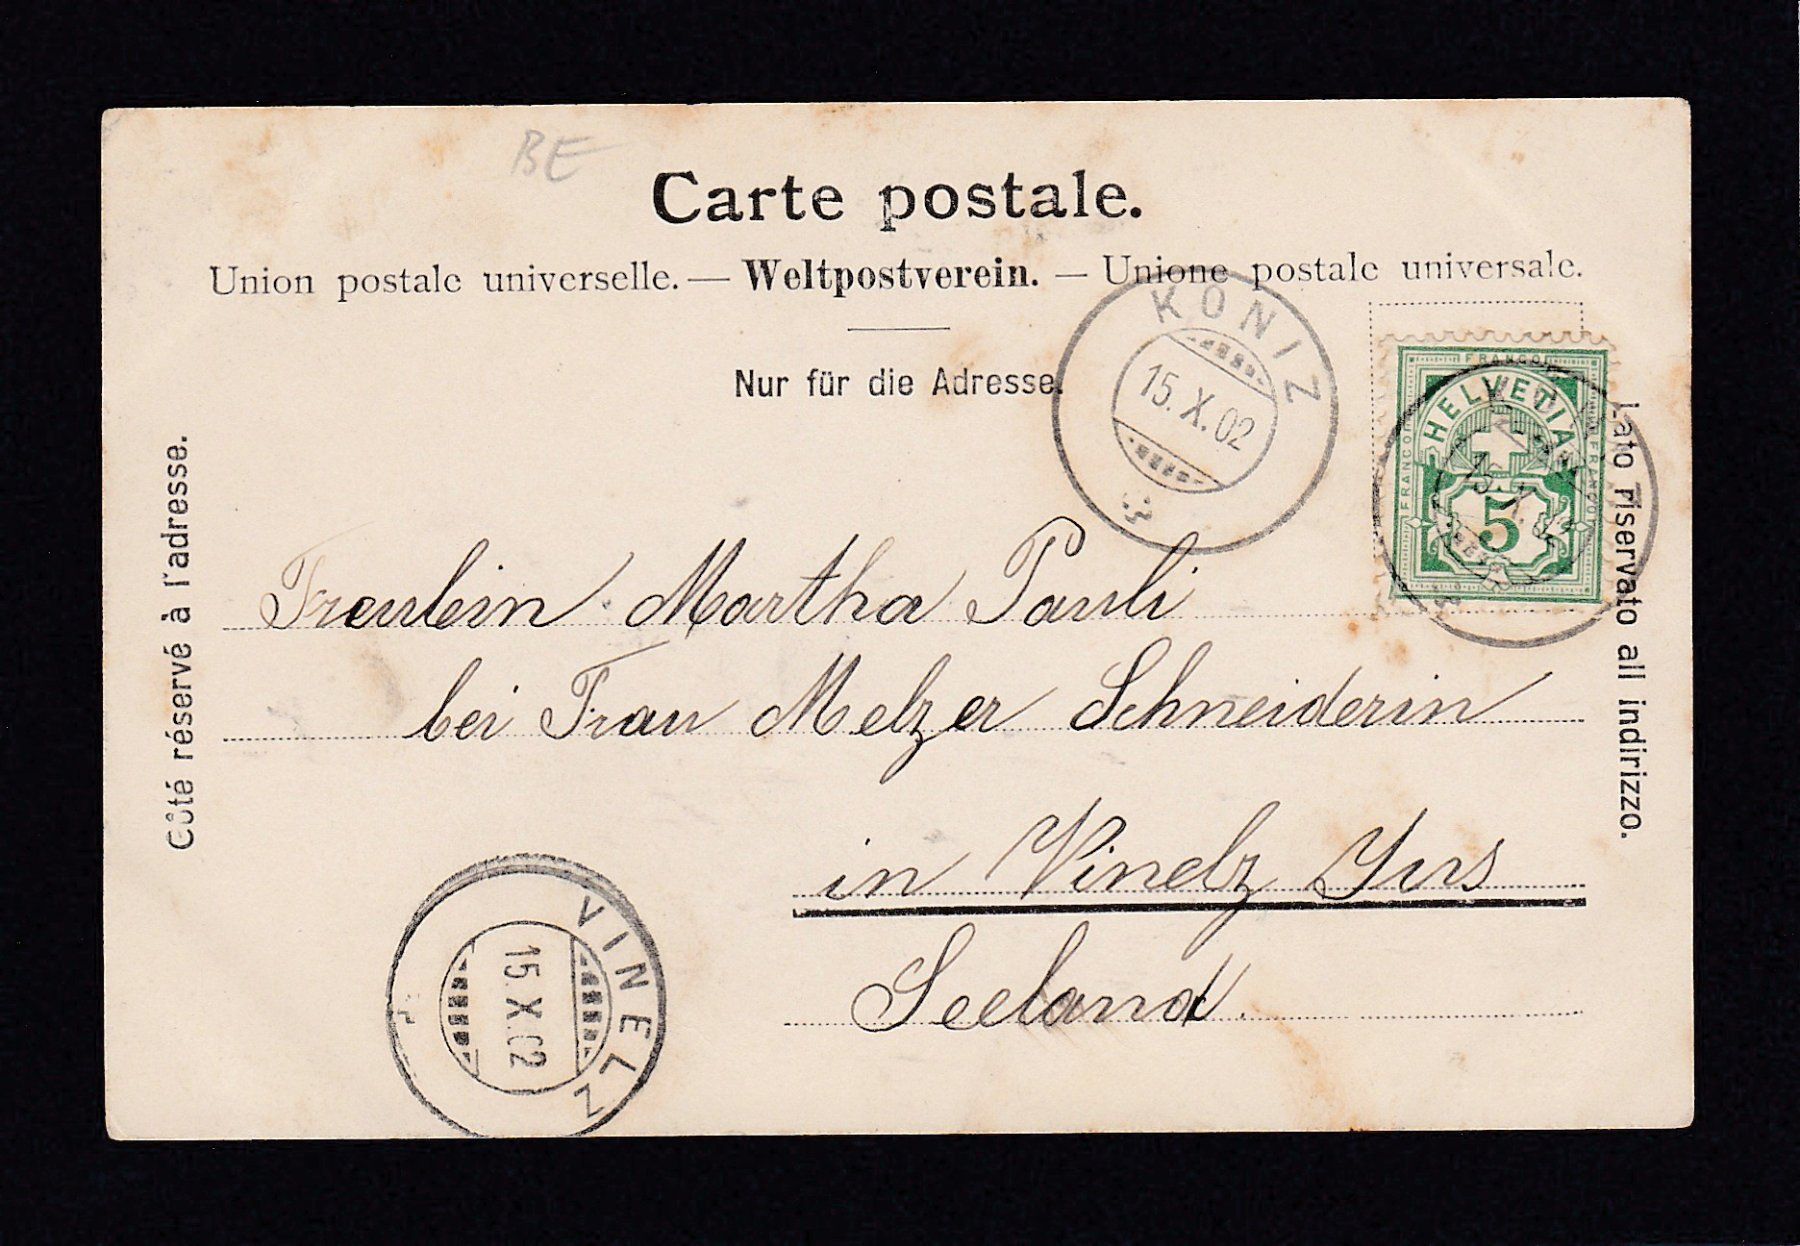 BE
Carte postale.
Union postale universelle. — Weltpostverein. — Unione postale universale.
Nur für die Adresse.
KÖNIZ
15. X. 02
FRANCO
HELVETIA
FRANCO
FRANCO
5
15. X. 02
Côté réservé à l'adresse.
Lato riservato all indirizzo.
Fräulein Martha Pauli
bei Frau Melzer Schneiderin
in Vinelz Ins
Seeland.
VINELZ
15. X. 02